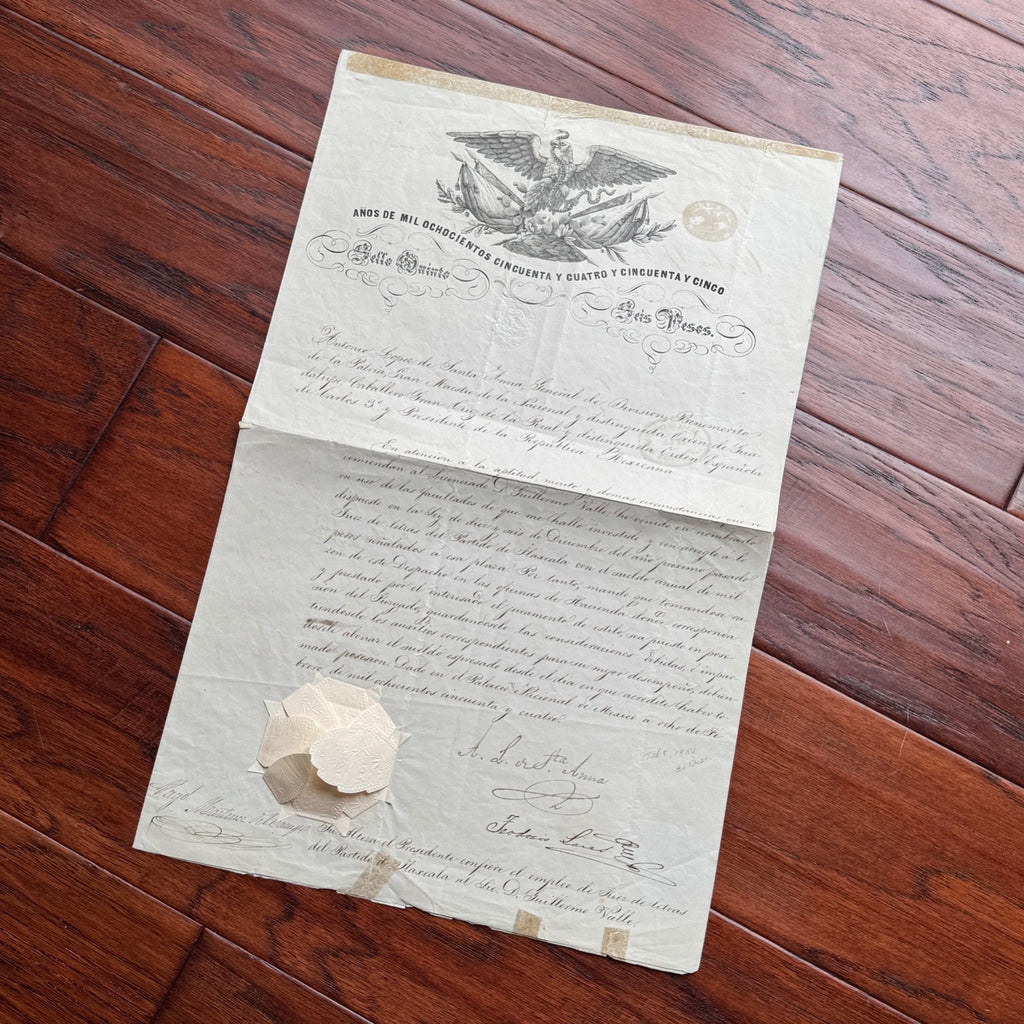 AÑOS DE MIL OCHOCIENTOS CINCUENTA Y CUATRO Y CINCUENTA Y CINCO
Sello Quinto
Seis Pesos.
Antonio Lopez de Santa Anna, General de Division, Benemerito
de la Patria, Gran Maestre de la Nacional y distinguida Orden de Gua
dalupe, Caballero Gran Cruz de la Real y distinguida Orden Española
de Carlos 3º y Presidente de la Republica Mexicana
En atencion a la aptitud, merito y demas circunstancias que re
comiendan al Licenciado D. Guillermo Valle he venido en nombrarlo
en uso de las facultades de que me hallo investido y con arreglo a lo
dispuesto en la Ley de diez y seis de Diciembre del año proximo pasado
Juez de letras del Partido de Tlaxcala con el sueldo anual de mil
pesos señalados a esa plaza. Por tanto, mando que tomandose ra
zon de este Despacho en las oficinas de Hacienda donde corresponda
y prestado por el interesado el juramento de estilo, sea puesto en pose
sion del Juzgado, guardandosele las consideraciones debidas, e impar
tiendosele los auxilios correspondientes para su mejor desempeño, debien
dosele abonar el sueldo espresado desde el dia en que acredite haber to
mado posesion. Dado en el Palacio Nacional de Mexico a ocho de Fe
brero de mil ochocientos cincuenta y cuatro.
A. L. de Sta Anna
Feb 8, 1854
Teodosio Lares
Su Alteza el Presidente confiere el empleo de Juez de letras
del Partido de Tlaxcala al Lic. D. Guillermo Valle.